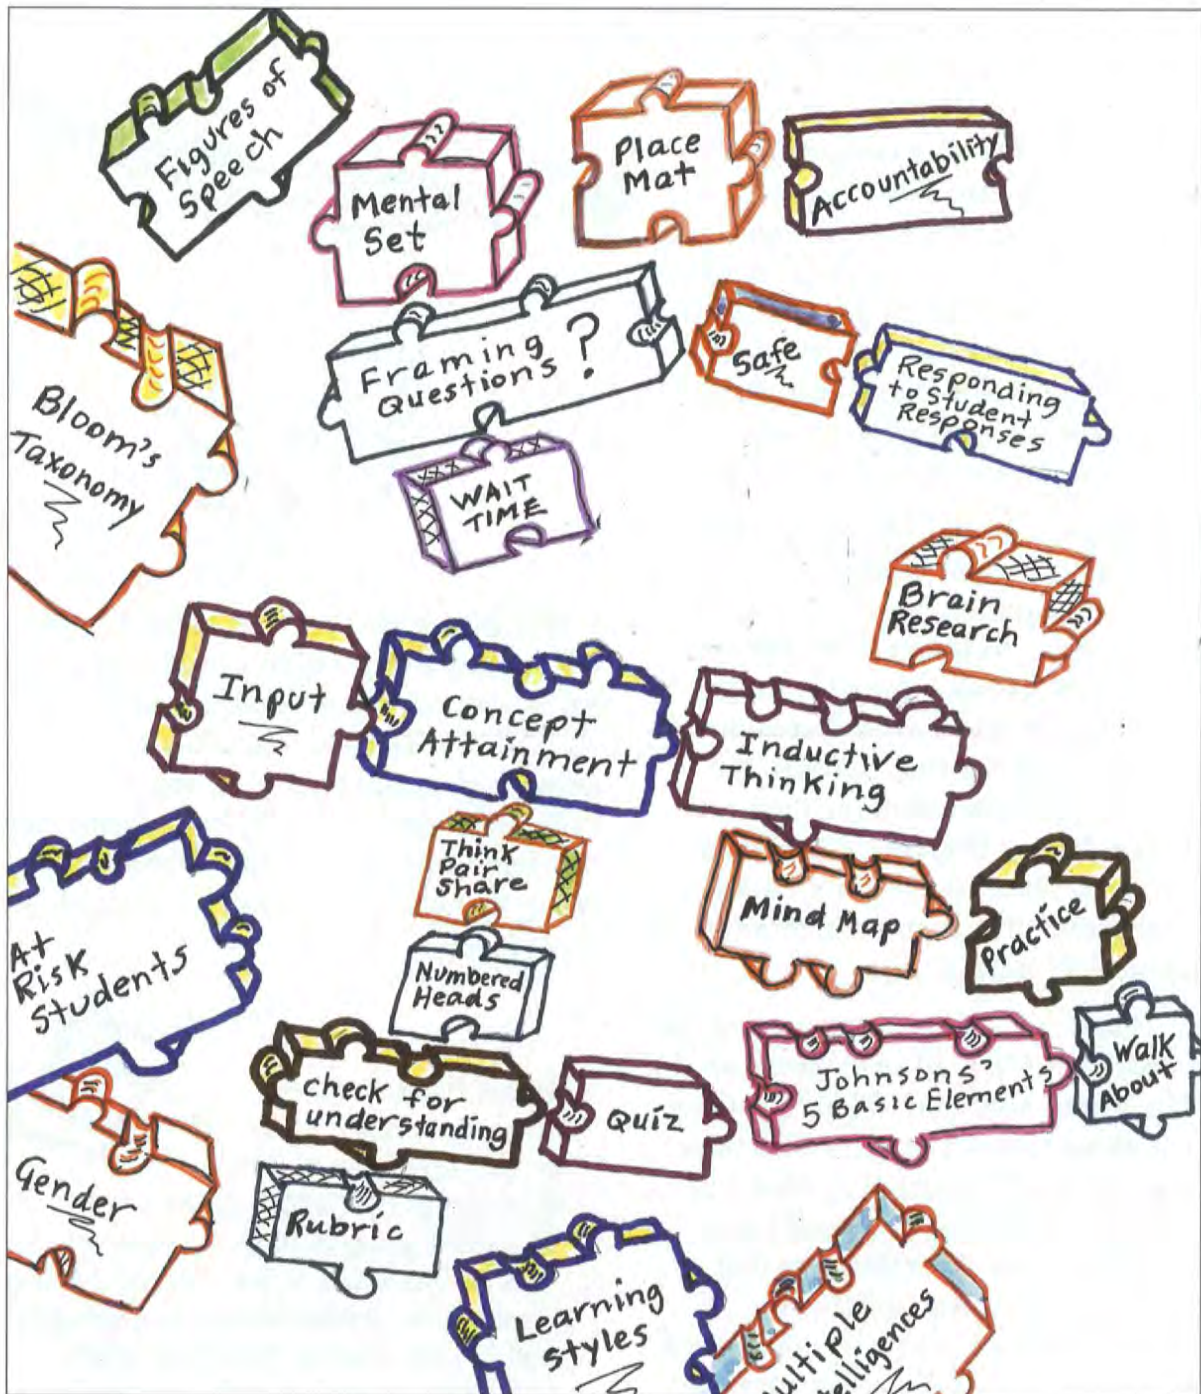 Figures of
Speech
Mental
Set
Place
Mat
Accountability
Framing
Questions ?
Safe
Responding
to Student
Responses
Bloom's
Taxonomy
WAIT
TIME
Brain
Research
Input
Concept
Attainment
Inductive
Thinking
Think
Pair
Share
Mind Map
Practice
At
Risk
Students
Numbered
Heads
Check for
understanding
Quiz
Johnsons'
5 Basic Elements
Walk
About
Gender
Rubric
Learning
Styles
ultiple
telligences